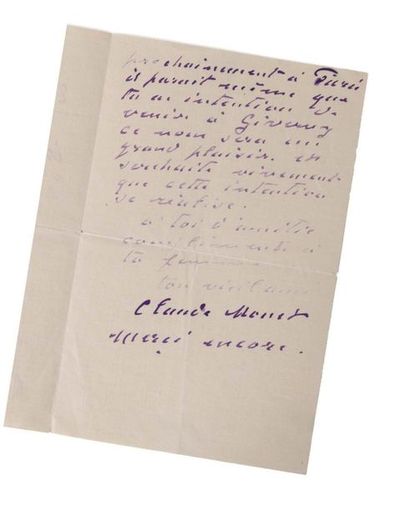 prochainement à Paris
il parait même que
tu as intention de
venir à Giverny
ce nous sera un
grand plaisir et
souhaite vivement
que cette intention
se réalise.
à toi d'amitié
compliments à
ta femme
ton vieil ami
Claude Monet
merci encore.